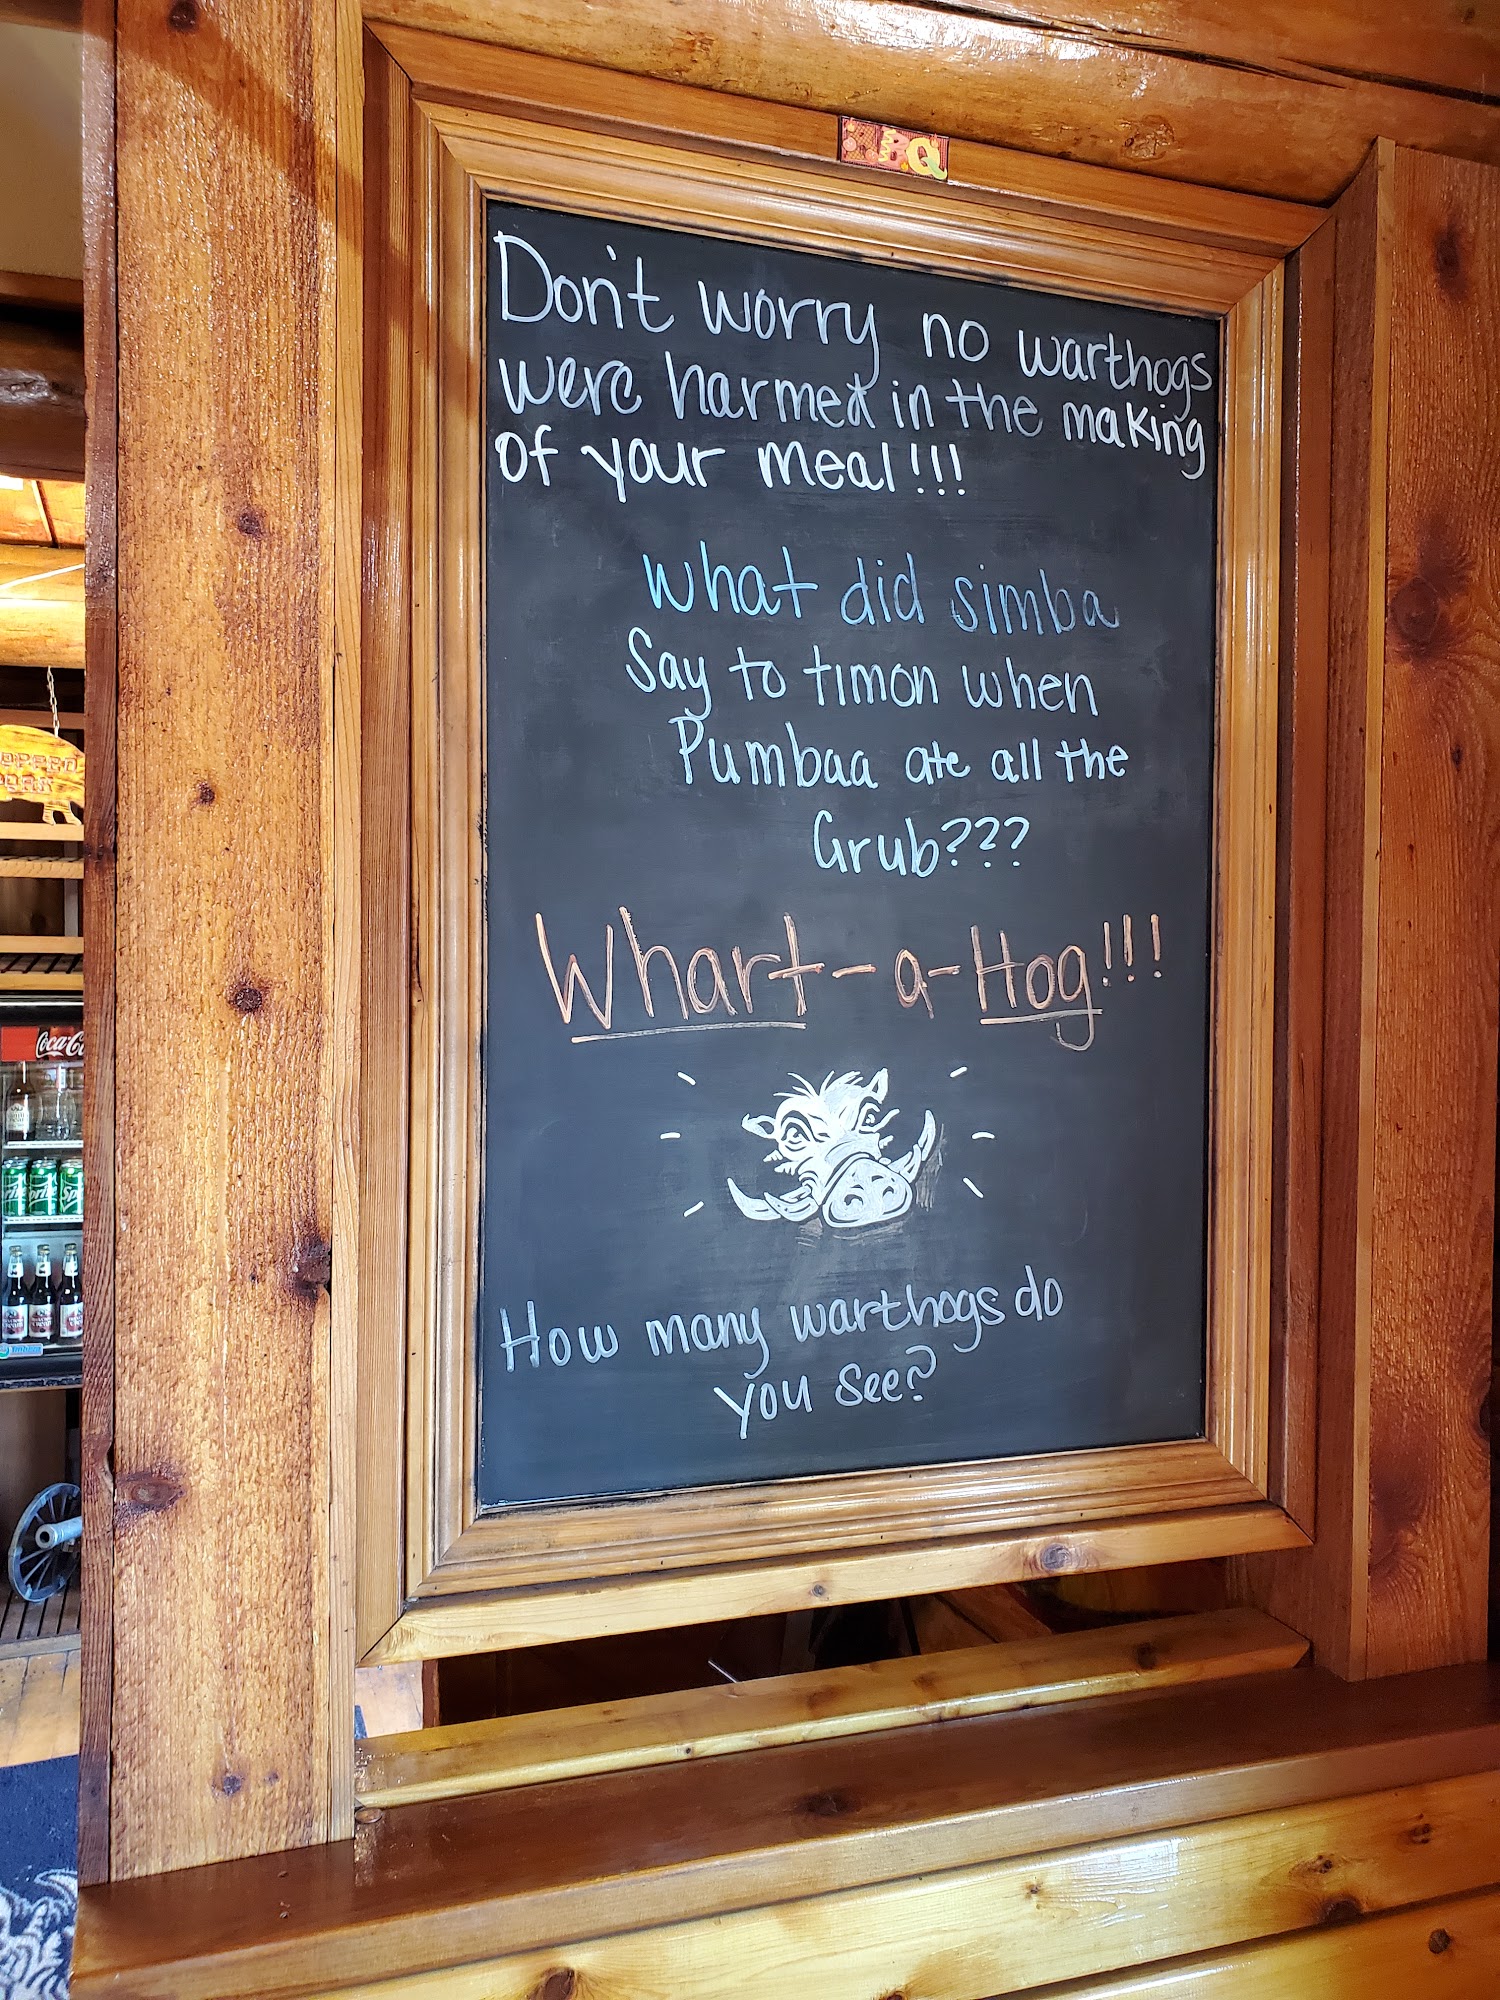 BBQ
Don't worry no warthogs
were harmed in the making
of your meal!!!
What did simba
Say to timon when
Pumbaa ate all the
Grub???
Whart-a-Hog!!!
How many warthogs do
you see?
Coca-C
Sprite